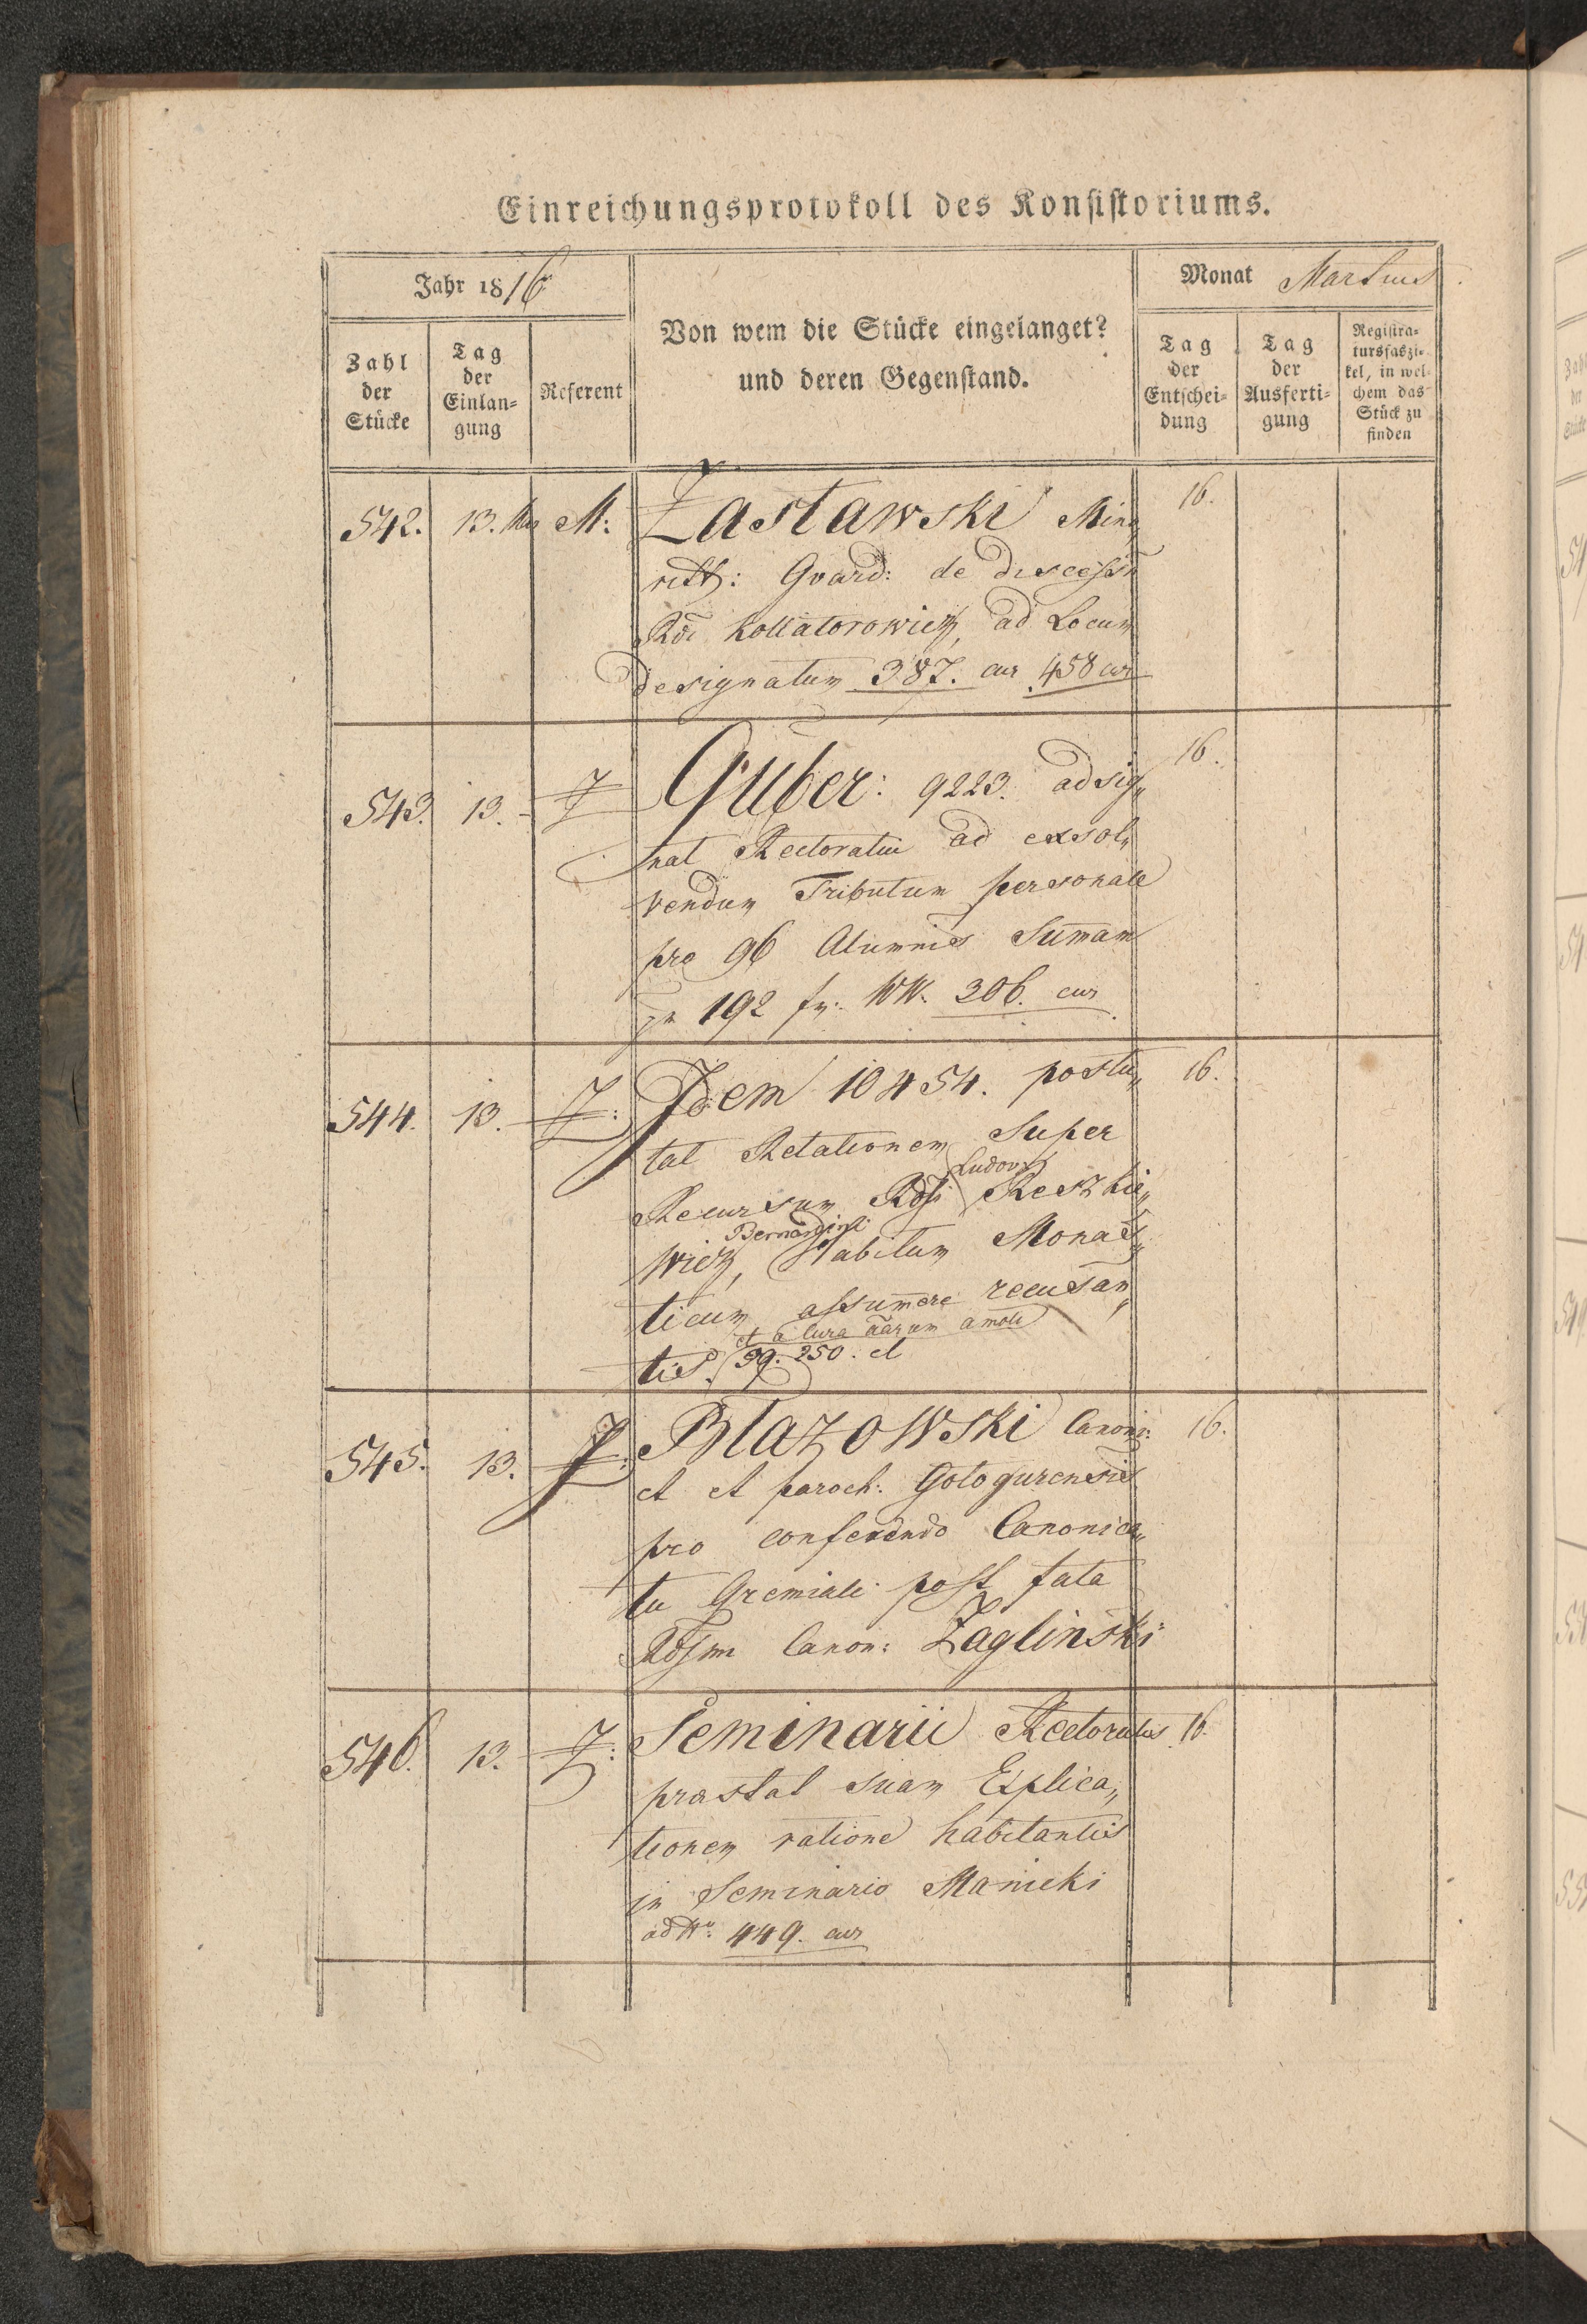 Einreichungsprotokoll des Konsistoriums.
Jahr 1816
Von wem die Stücke eingelanget?
und deren Gegenstand.
Monat Martius
Zahl
der
Stücke
Tag
der
Einlan=
gung
Referent
Tag
der
Entschei=
dung
Tag
der
Ausferti=
gung
Registra=
tursfaszi=
kel, in wel=
chem das
Stück zu
finden
542. 13. M: Zasławski Mino„ 16.
ritt: Gvard: de discessu
Rdi Kollatorowicz, ad Locum
designatum 387. cur 458 cur
543. 13. Z Guber: 9223. adsig„ 16.
nat Rectoratui ad exsol„
vendum Tributum personale
pro 96 Alumnis Summam
in 192 fr. WW. 306. cur
544. 13. Z: Idem 10454. postu„ 16.
lat Relationem Super
Ludov:
Recursum Rdssi Reszkie„
Bernardini
wicz, Habitum Monas„
ticum assumere recusan„
et a cura aarum amoti
tis. 99. 250. et
545. 13. Z: Błazowski Canon: 16.
et et paroch: Gologurensis
pro conferendo Canonica„
tu Gremiali post fata
Rdssmi Canon: Zagliński
546. 13. Z: Seminarii Rectoratus 16.
præstat suam Explica„
tionem ratione habitantis
in Seminario Manieki
ad No: 449. cur